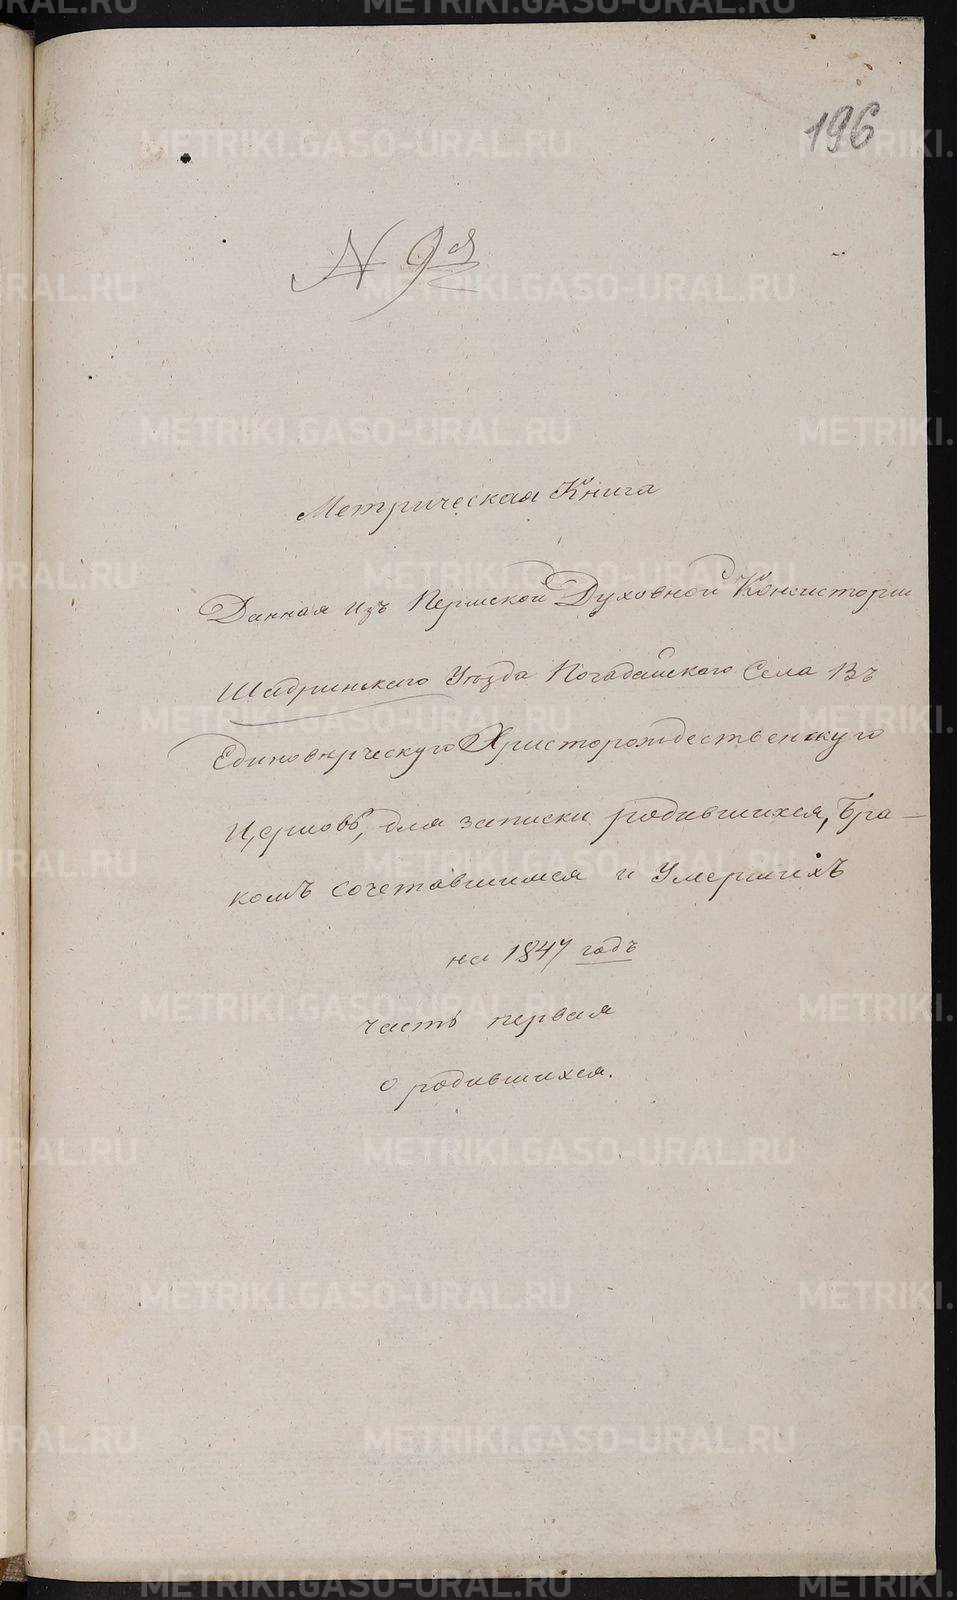 196
N 9я
Метрическая Книга
Данная изъ Пермской Духовной Консисторіи
Шадринскаго Уѣзда Погадайскаго Села Въ
Единовѣрческую Христорождественскую
Церковь, для записки родившихся, Бра-
комъ сочетавшимся и Умершихъ
на 1847 годъ
часть первая
о родившихся.
METRIKI.GASO-URAL.RU